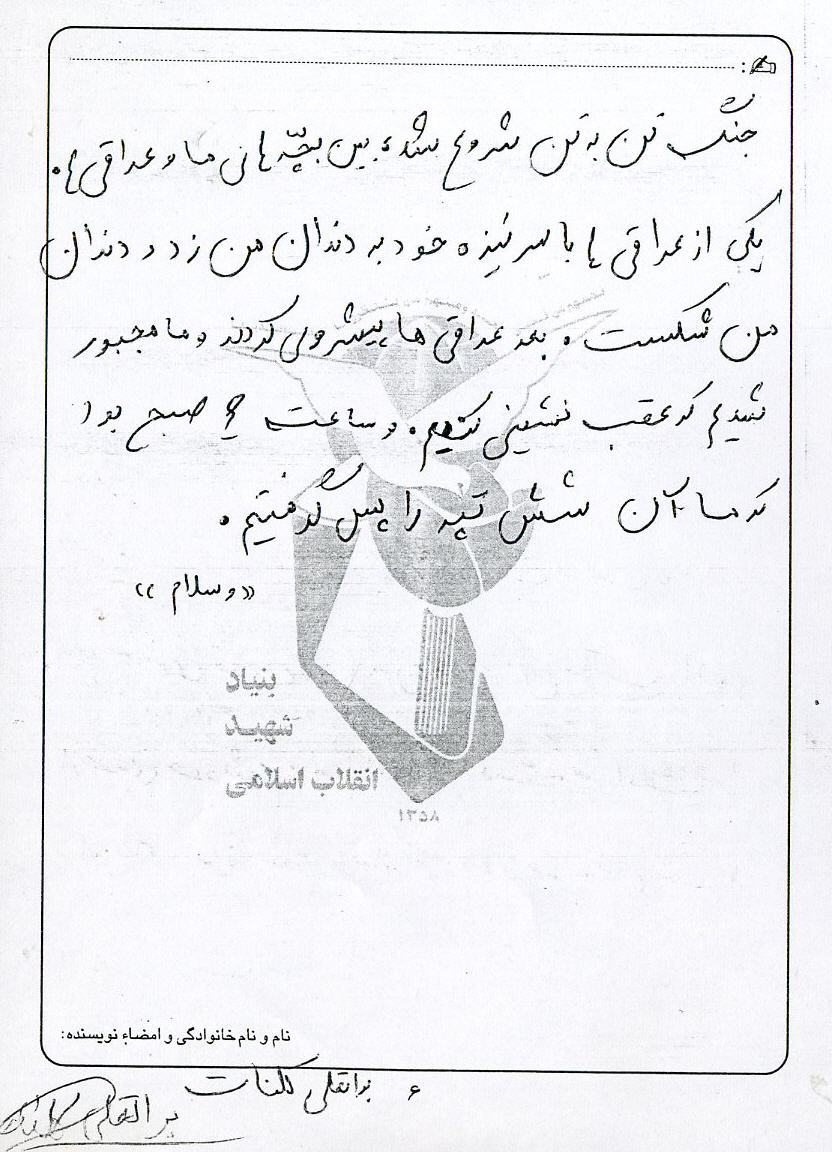 جنگ تن به تن شروع شده بین بچّه های ما و عراقی ها.
یکی از عراقی ها با سر نیزه خود به دندان من زد و دندان
من شکست. بعد عراقی ها پیشروی کردند و ما مجبور
شدیم که عقب نشینی کنیم. و ساعت صبح بود
که ما آن شش تپه را پس گرفتیم.
«وسلام»
بنیاد
شهید
انقلاب اسلامی
۱۳۵۸
نام و نام خانوادگی و امضاء نویسنده:
۶